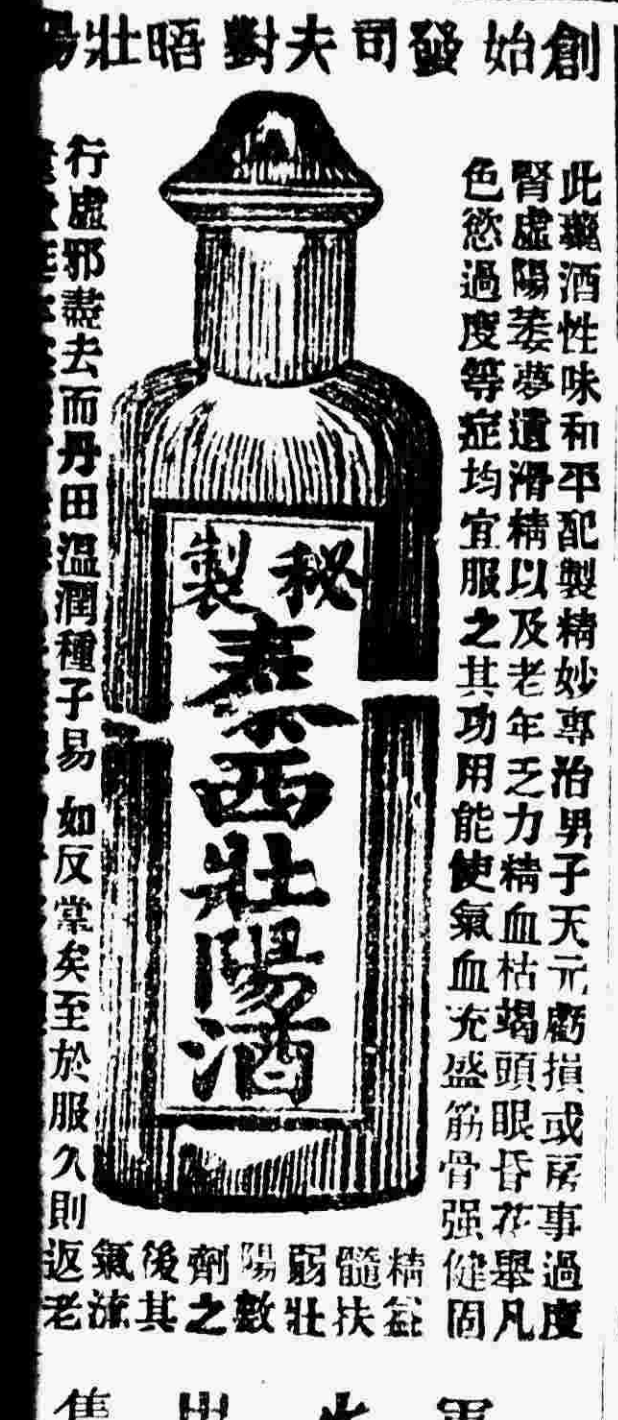 創始發司夫對晤壯陽
此藥酒性味和平配製精妙專治男子天元虧損或房事過度
腎虛陽萎夢遺滑精以及老年乏力精血枯竭頭眼昏花舉凡
色慾過度等症均宜服之其功用能使氣血充盛筋骨强健固
精益
髓扶
弱壯
陽數
劑之
後其
氣流
行虛邪盡去而丹田溫潤種子易如反掌矣至於服久則返老
秘製
泰西壯陽酒